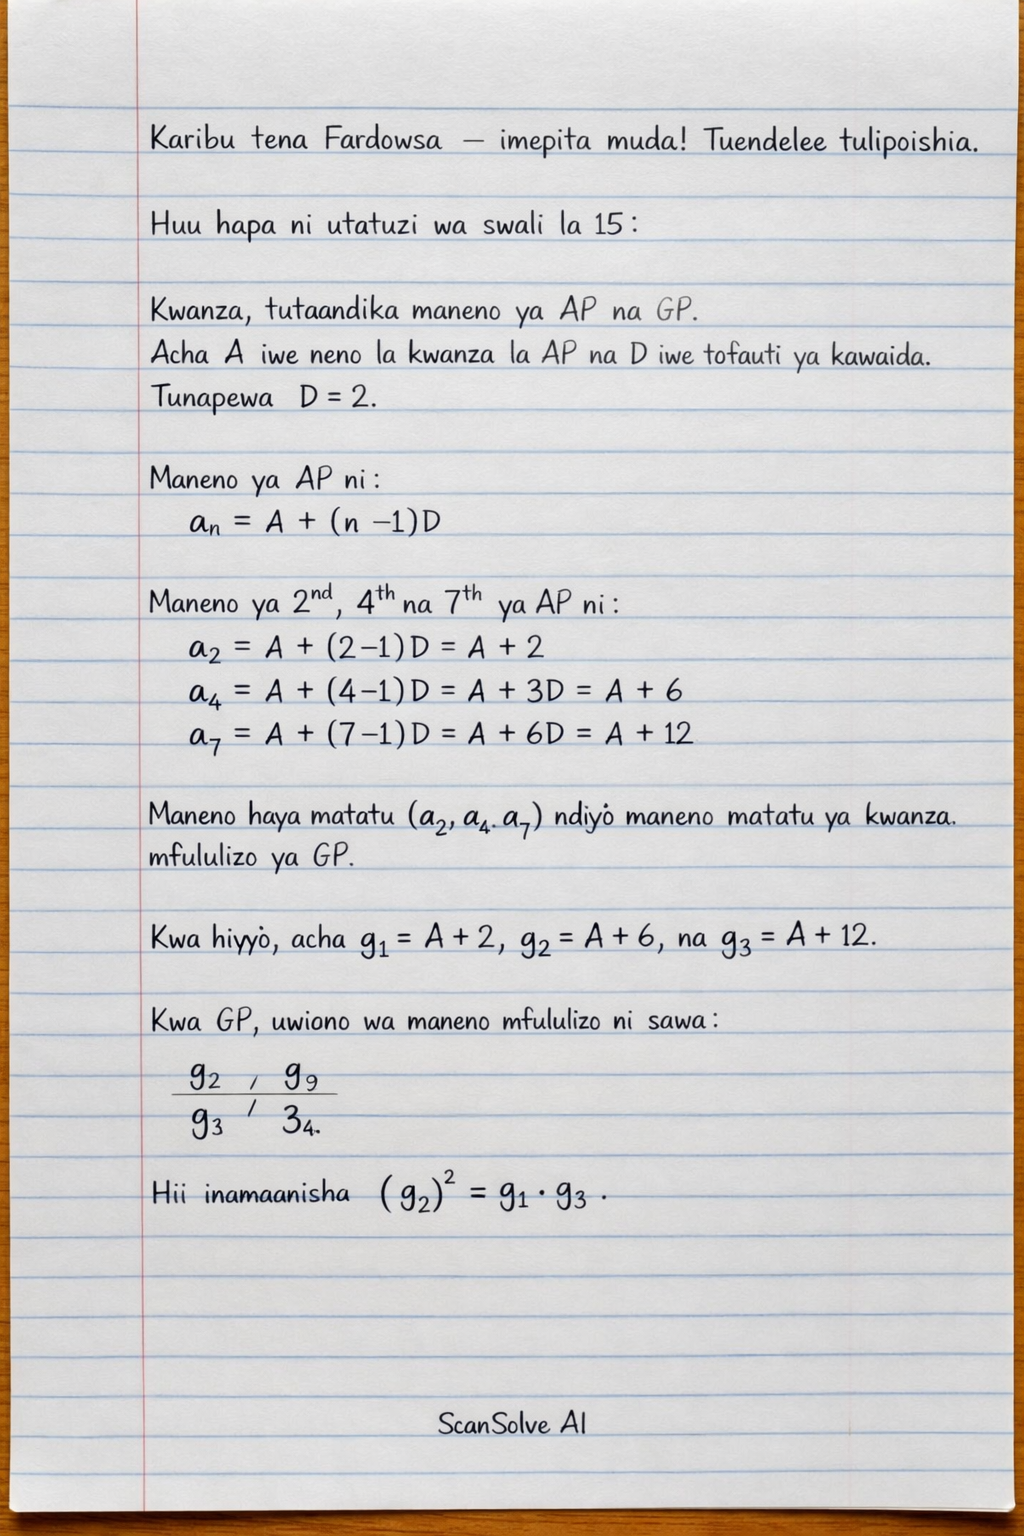 Karibu tena Fardowsa — imepita muda! Tuendelee tulipoishia.
Huu hapa ni utatuzi wa swali la 15:
Kwanza, tutaandika maneno ya AP na GP.
Acha A iwe neno la kwanza la AP na D iwe tofauti ya kawaida.
Tunapewa D = 2.
Maneno ya AP ni:
aₙ = A + (n −1)D
Maneno ya 2ⁿᵈ, 4ᵗʰ na 7ᵗʰ ya AP ni:
a₂ = A + (2−1)D = A + 2
a₄ = A + (4−1)D = A + 3D = A + 6
a₇ = A + (7−1)D = A + 6D = A + 12
Maneno haya matatu (a₂, a₄. a₇) ndiyȯ maneno matatu ya kwanza.
mfululizo ya GP.
Kwa hiyyȯ, acha g₁ = A + 2, g₂ = A + 6, na g₃ = A + 12.
Kwa GP, uwiono wa maneno mfululizo ni sawa:
g₂ / g₉
g₃ / 3₄.
Hii inamaanisha (g₂)² = g₁ · g₃ .
ScanSolve AI